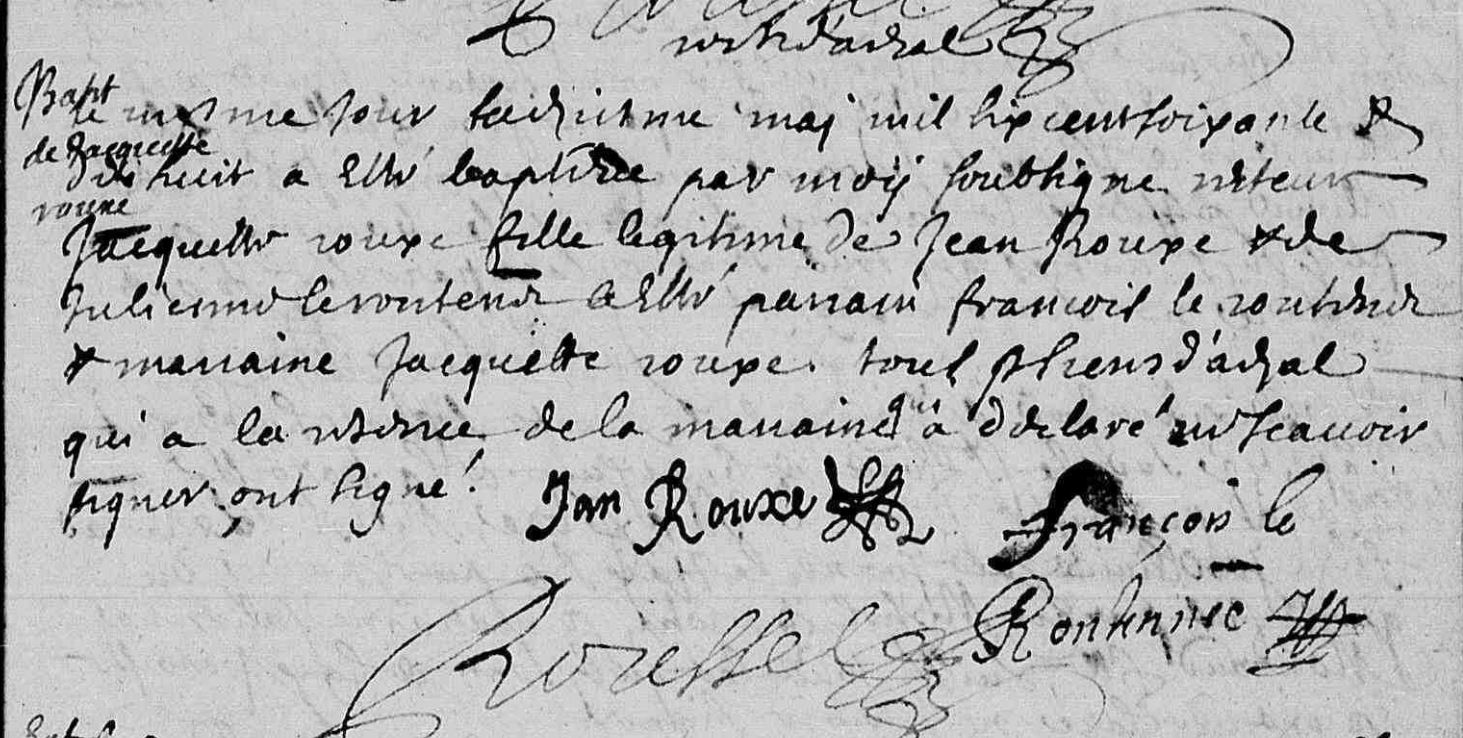 rect d'arzal
Bapt
de Jacquette
rouxe
le mesme jour treiziesme maj mil six cent soixante &
dix huit a esté baptizée par moy soubsigne recteur
Jacquette rouxe fille legitime de Jean Rouxe & de
Julienne le rontenec a esté parrain francois le rontenec
& marraine Jacquette rouxe tous d'arzal
qui a la reserve de la marraine qui a declaré ne scauoir
signer ont signé.
Jan Rouxe
François le
Rontennec
Roussel